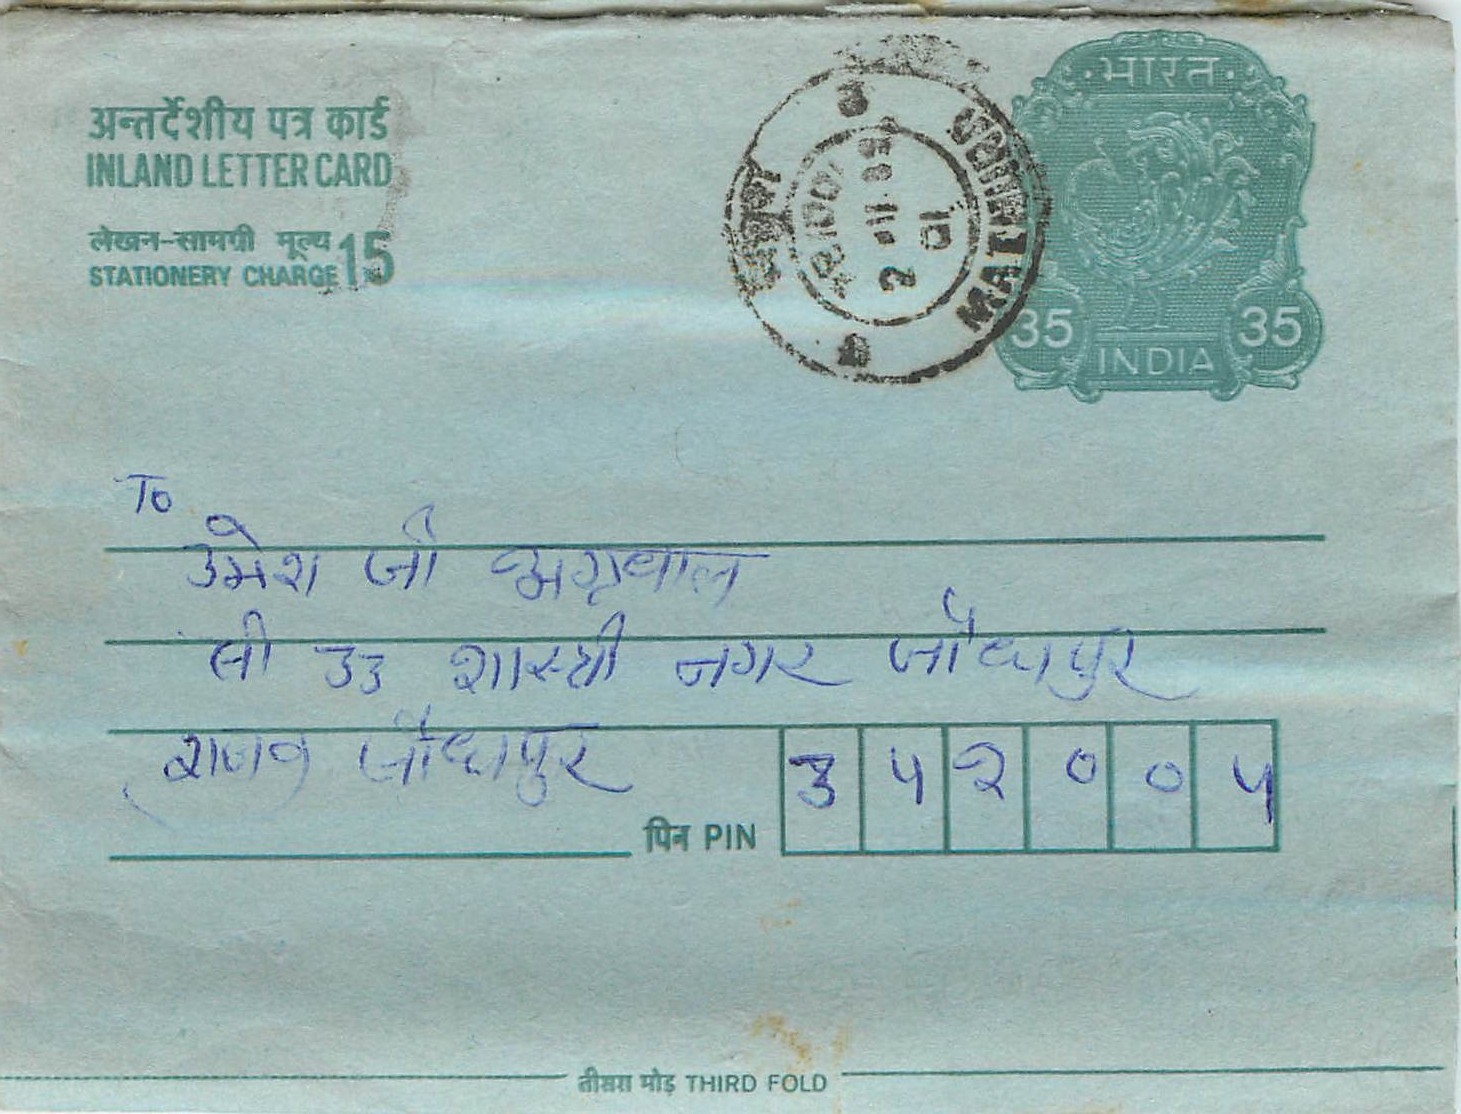 अन्तर्देशीय पत्र कार्ड
INLAND LETTER CARD
लेखन-सामग्री मूल्य 15
STATIONERY CHARGE
भारत
35 35
INDIA
To
उमेश जी अग्रवाल
सी 33 शास्त्री नगर जोधपुर
जोधपुर
पिन PIN
3 ५ २ ० ० ५
तीसरा मोड़ THIRD FOLD